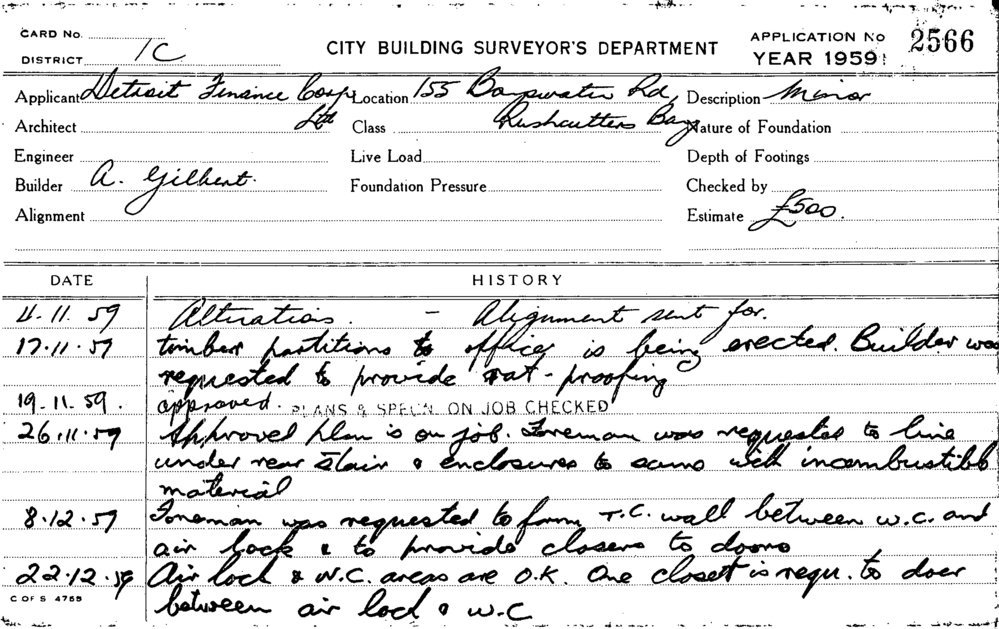 CARD No.
DISTRICT 1C
CITY BUILDING SURVEYOR'S DEPARTMENT
APPLICATION No 2566
YEAR 1959
Applicant Detroit Finance Corp Location 155 Bayswater Rd, Description Minor
Architect Ltd Class Rushcutters Bay Nature of Foundation
Engineer Live Load Depth of Footings
Builder A. Gilbert. Foundation Pressure Checked by
Alignment Estimate £500.
DATE HISTORY
4.11.59 Alterations. - Alignment sent for.
17.11.59 timber partitions to offices is being erected. Builder was
requested to provide rat-proofing
19.11.59. approved. PLANS & SPEC'N. ON JOB CHECKED
26.11.59 Approved plan is on job. Foreman was requested to line
under rear stair & enclosures to same with incombustible
material
8.12.59 Foreman was requested to form T.C. wall between w.c. and
air lock & to provide closers to doors
22.12.59 Air lock & W.C. areas are O.K. One closer is requ. to door
C OF S 4765
between air lock & w.c